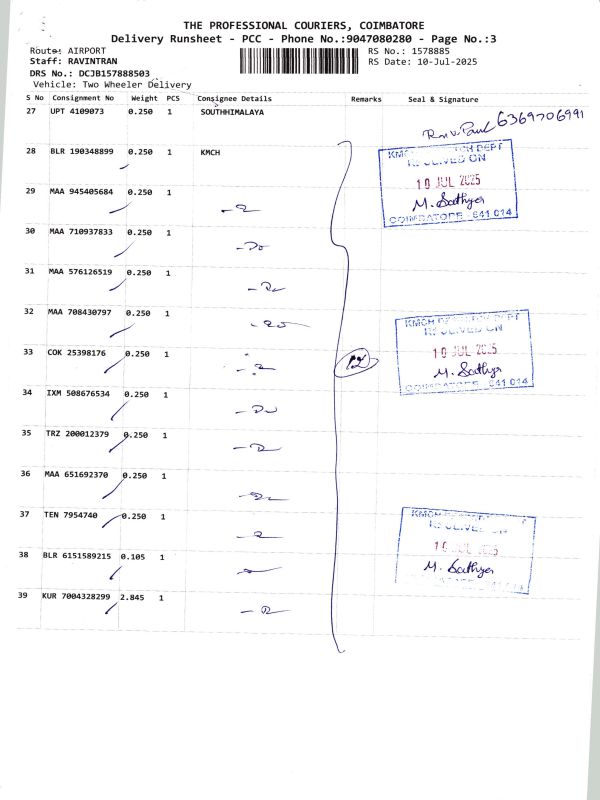 THE PROFESSIONAL COURIERS, COIMBATORE
Delivery Runsheet - PCC - Phone No.:9047080280 - Page No.:3
Route: AIRPORT
RS No.: 1578885
Staff: RAVINTRAN
RS Date: 10-Jul-2025
DRS No.: DCJB157888503
Vehicle: Two Wheeler Delivery
S No Consignment No Weight PCS Consignee Details Remarks Seal & Signature
27 UPT 4109073 0.250 1 SOUTHHIMALAYA
6369706991
28 BLR 190348899 0.250 1 KMCH
KMCH DEPT
RECEIVED ON
10 JUL 2025
M. Sathya
COIMBATORE - 641 014
29 MAA 945405684 0.250 1
30 MAA 710937833 0.250 1 - Do
31 MAA 576126519 0.250 1
32 MAA 708430797 0.250 1
KMCH DEPT
RECEIVED ON
10 JUL 2025
M. Sathya
COIMBATORE - 641 014
33 COK 25398176 0.250 1
12
34 IXM 508676534 0.250 1
35 TRZ 200012379 0.250 1
36 MAA 651692370 0.250 1
37 TEN 7954740 0.250 1
KMCH
RECEIVED ON
10 JUL 2025
M. Sathya
38 BLR 6151589215 0.105 1
39 KUR 7004328299 2.845 1